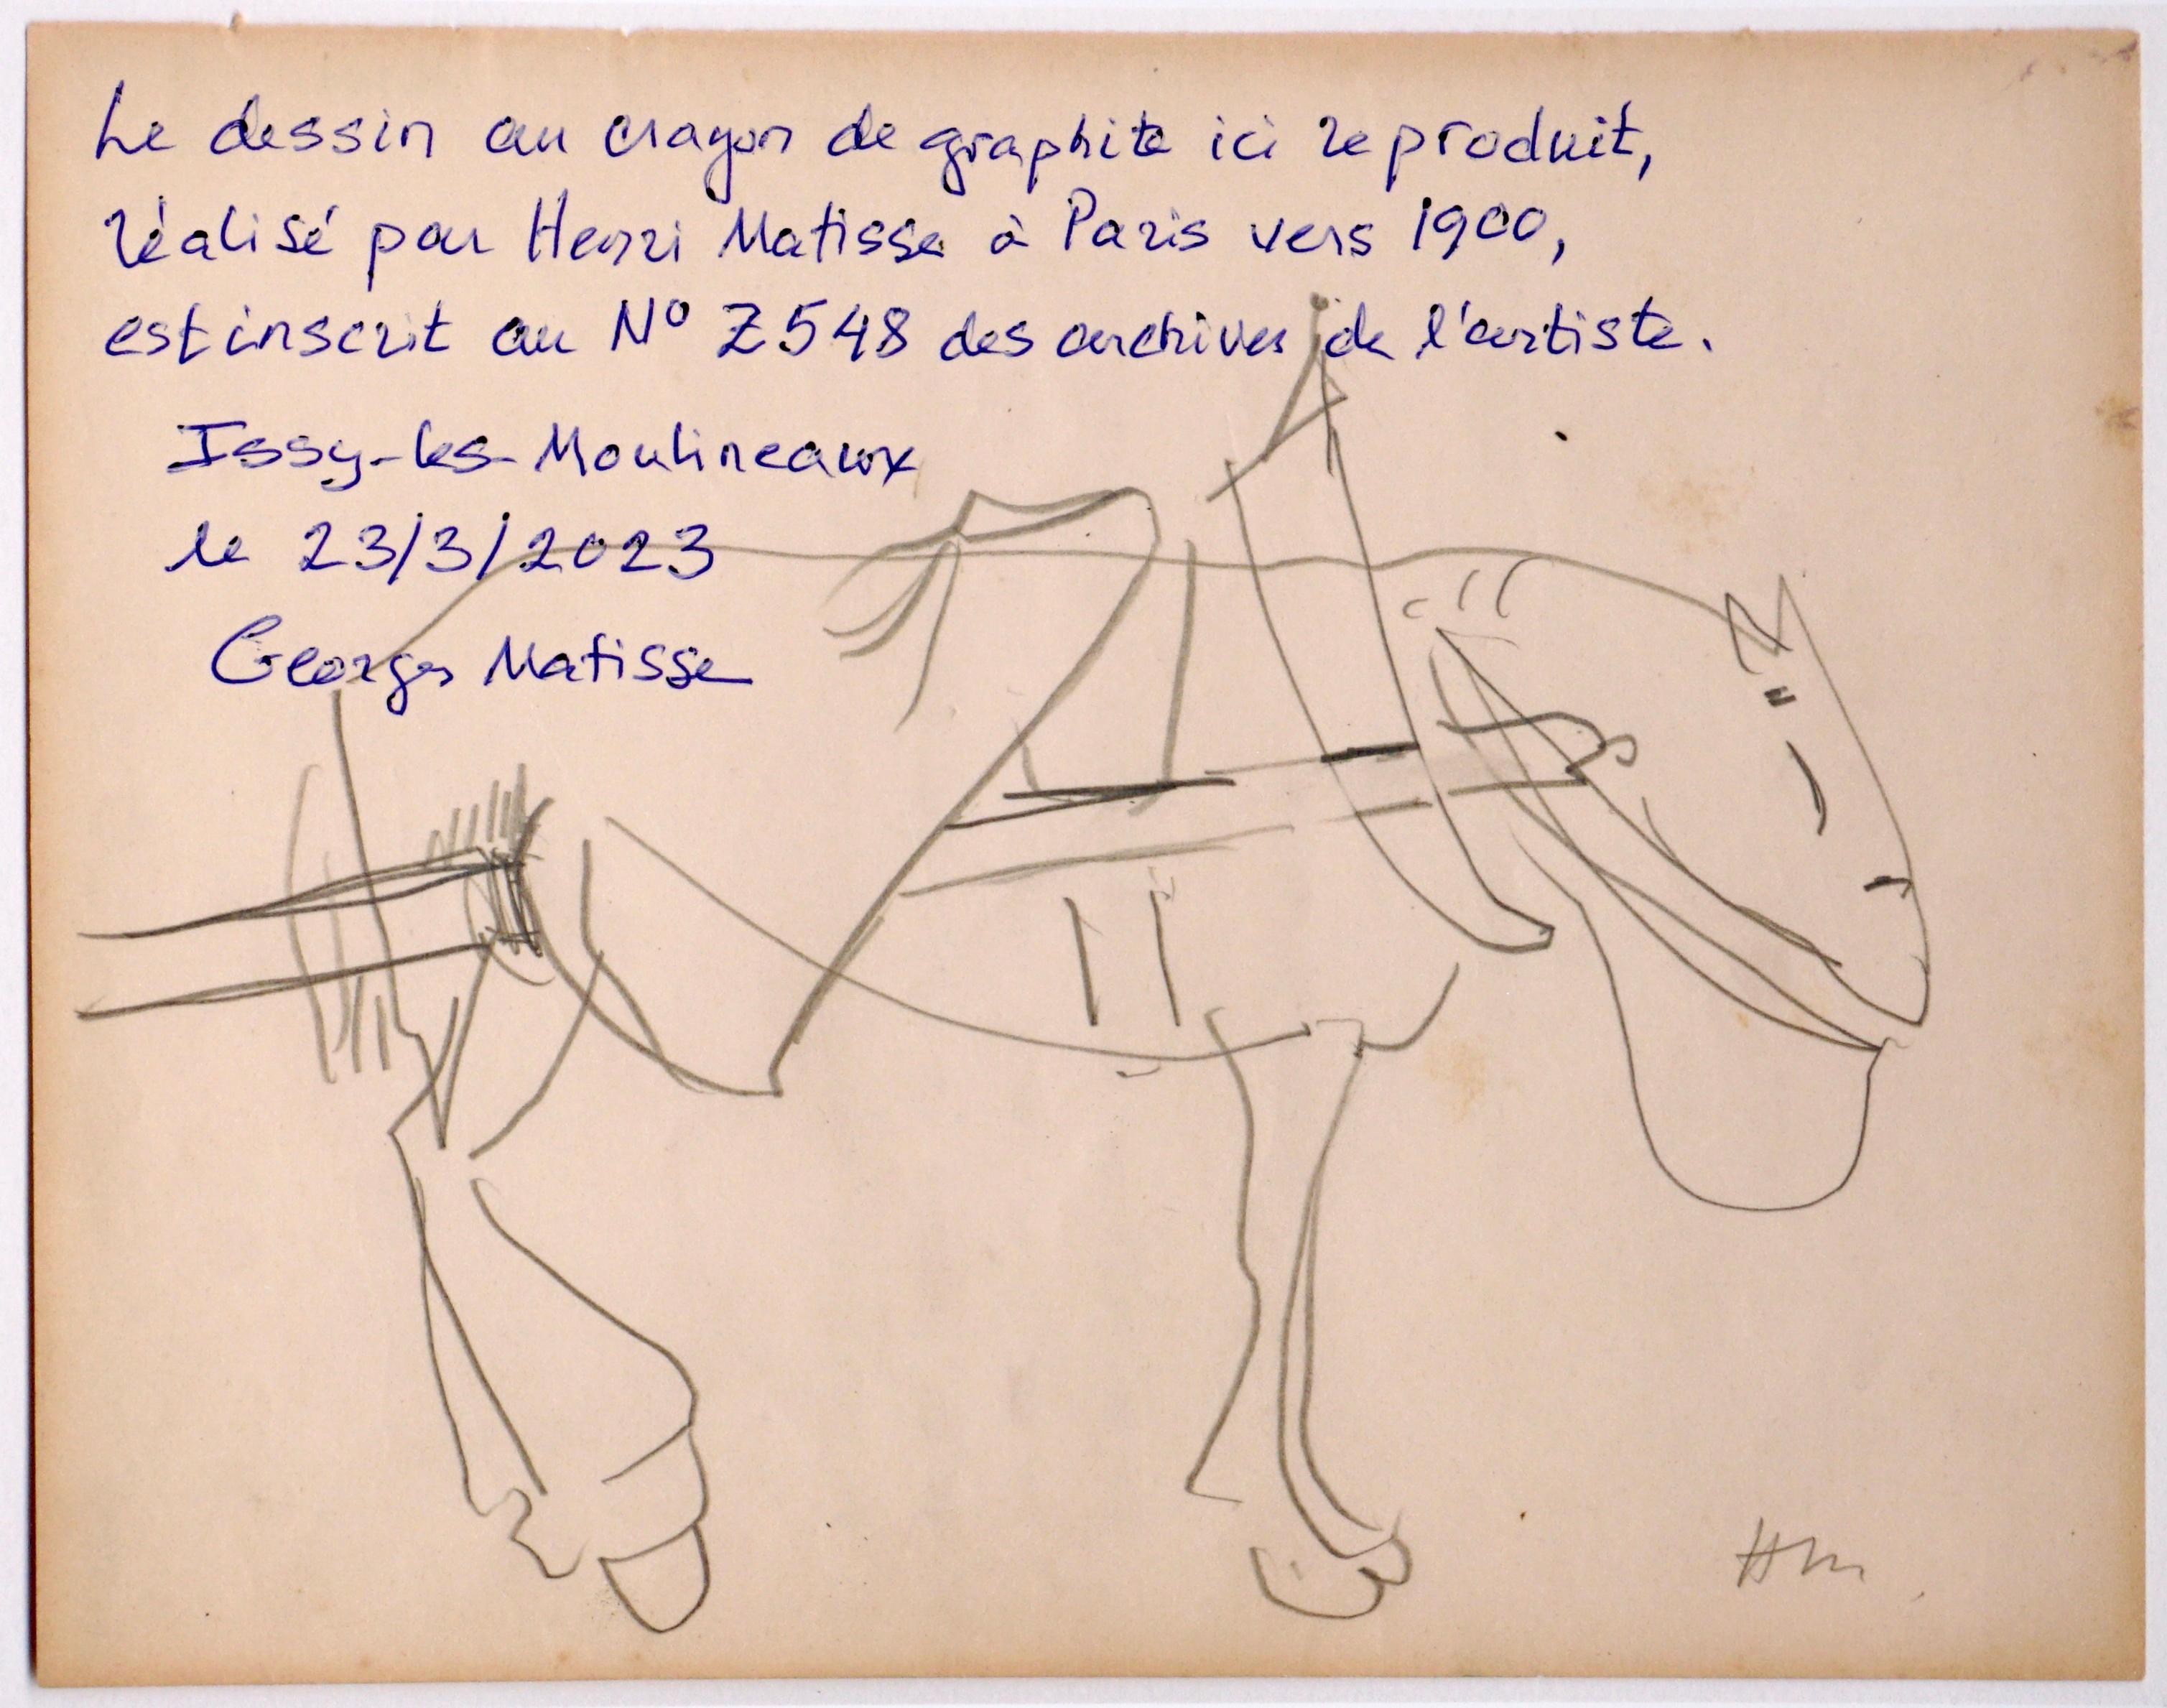 Le dessin au crayon de graphite ici reproduit,
réalisé par Henri Matisse à Paris vers 1900,
est inscrit au N° Z548 des archives de l'artiste.
Issy-les-Moulineaux
le 23/3/2023
Georges Matisse
HM